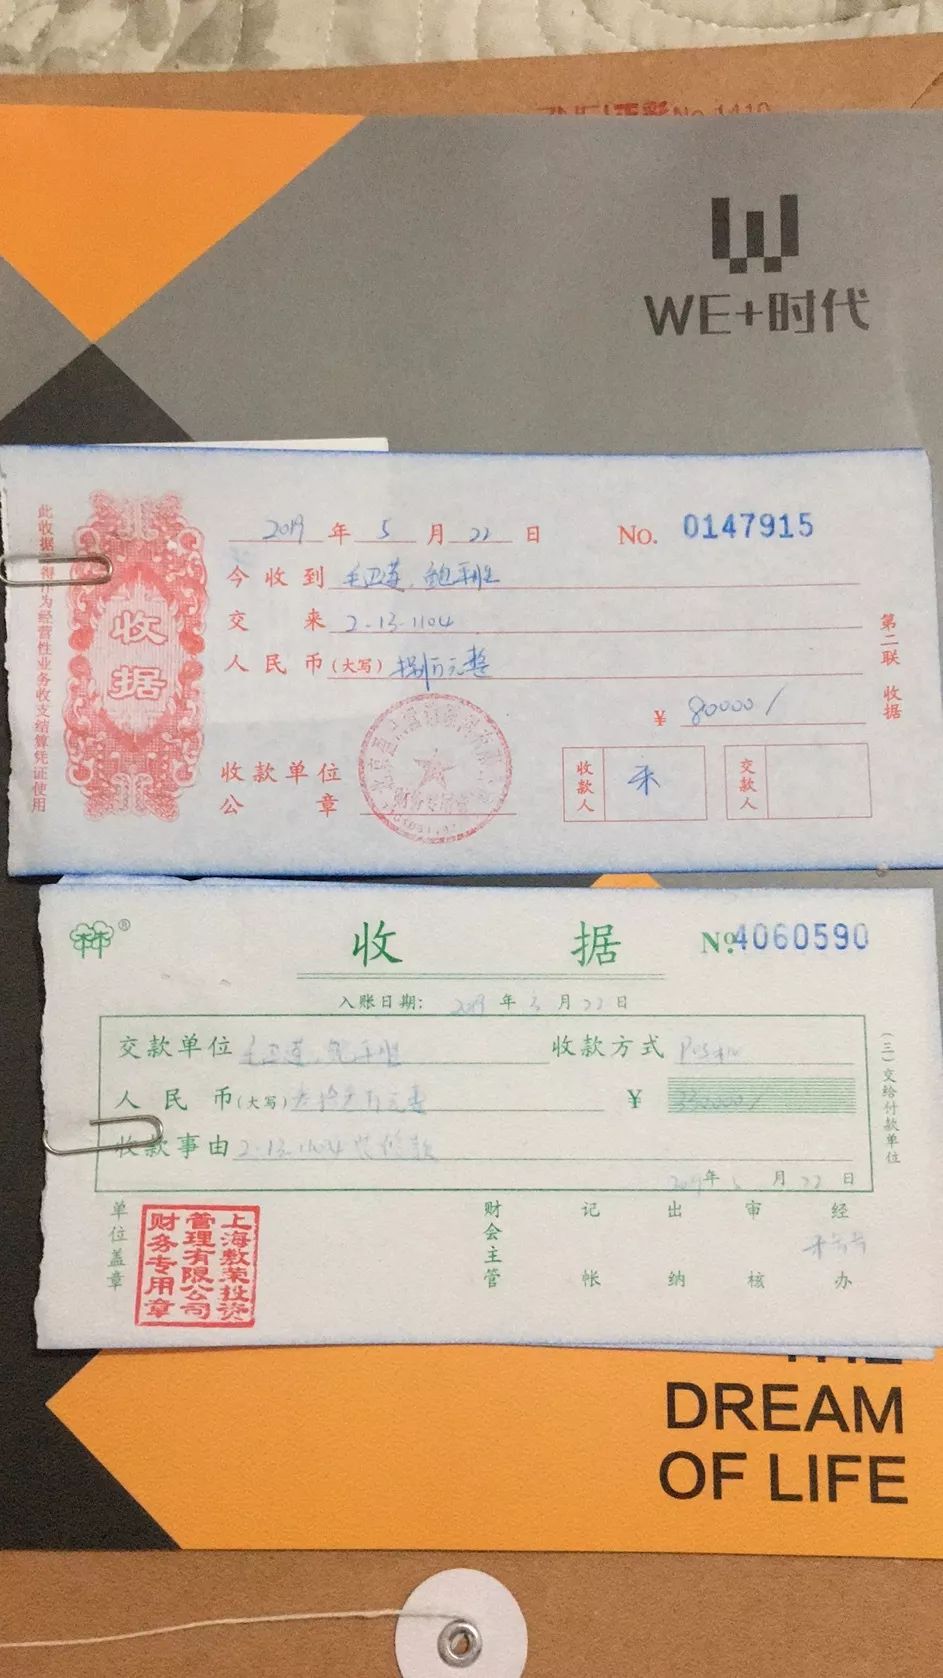 No 1410
WE+时代
此收据不得作为经营性业务收支结算凭证使用
收据
2019年5月22日 No. 0147915
今收到 毛卫莲、鲍平班
交来 2-13-1104
人民币(大写) 捌万元整
¥ 80000/
收款单位公章
财务专用章
收款人
交款人
第二联 收据
®
收据 No 4060590
入账日期: 2019年5月22日
交款单位 毛卫莲、鲍平班 收款方式 Pos机
人民币(大写) 叁拾叁万元整 ¥ 330000/
收款事由 2-13-1104 装修款
2019年5月22日
(三)交给付款单位
单位盖章
上海数荣投资管理有限公司财务专用章
财会主管 记帐 出纳 审核 经办
THE
DREAM
OF LIFE